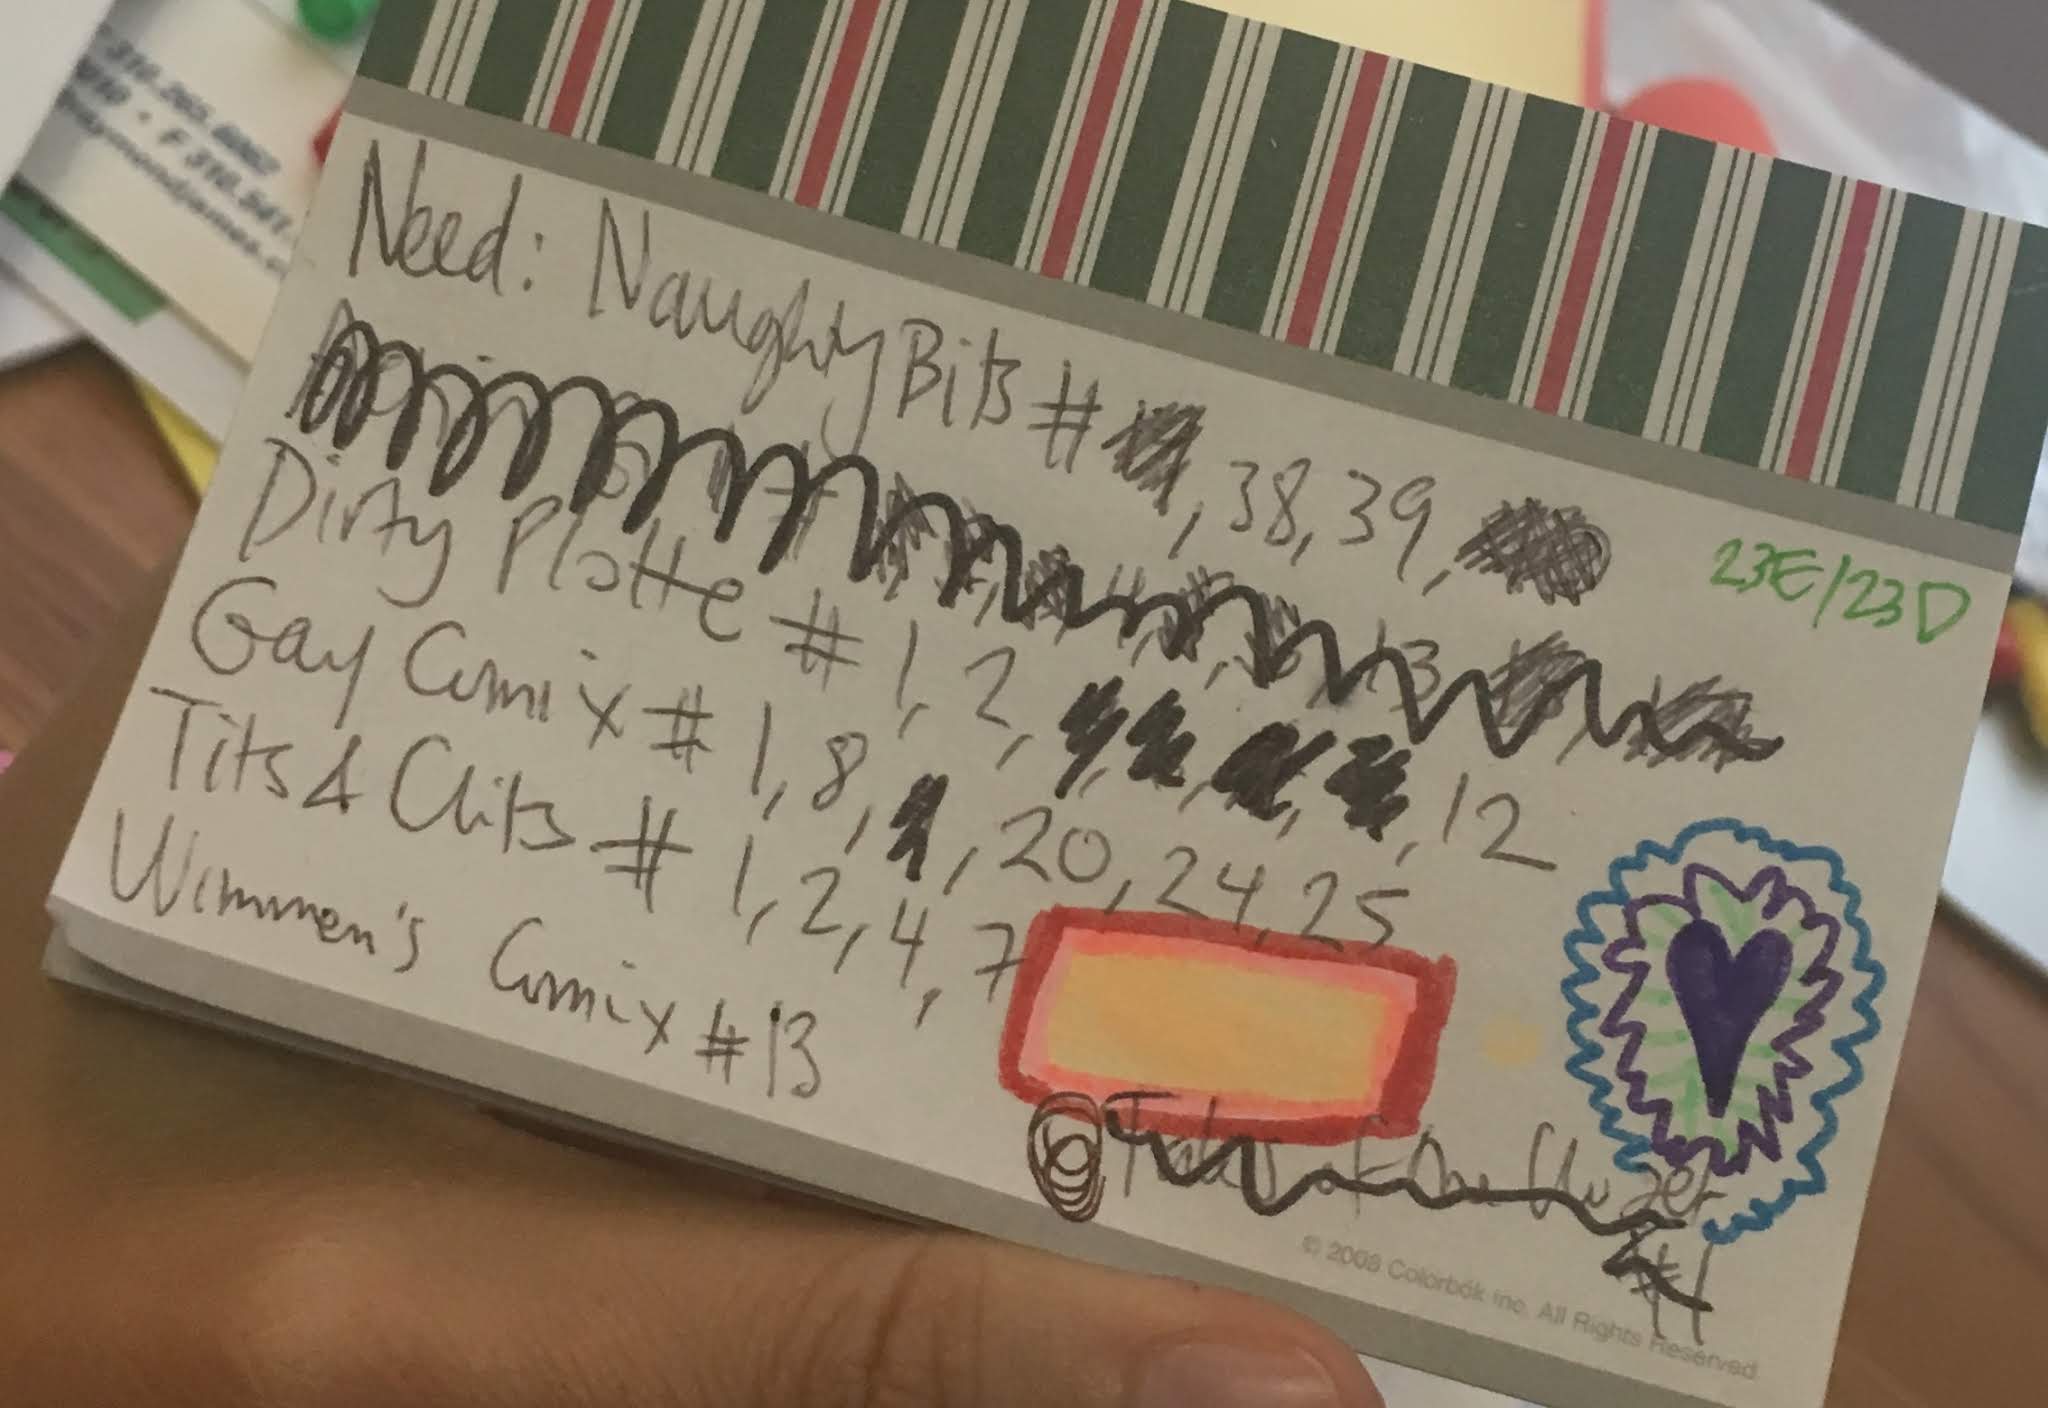 Need: Naughty Bits # , 38, 39,
23E/23D
Dirty Plotte # 1, 2, , , , , 12
Gay Comix # 1, 8, , 20, 24, 25
Tits & Clits # 1, 2, 4, 7
Wimmen's Comix #13
Tales of the Closet
#1
© 2008 Colorbök Inc. All Rights Reserved